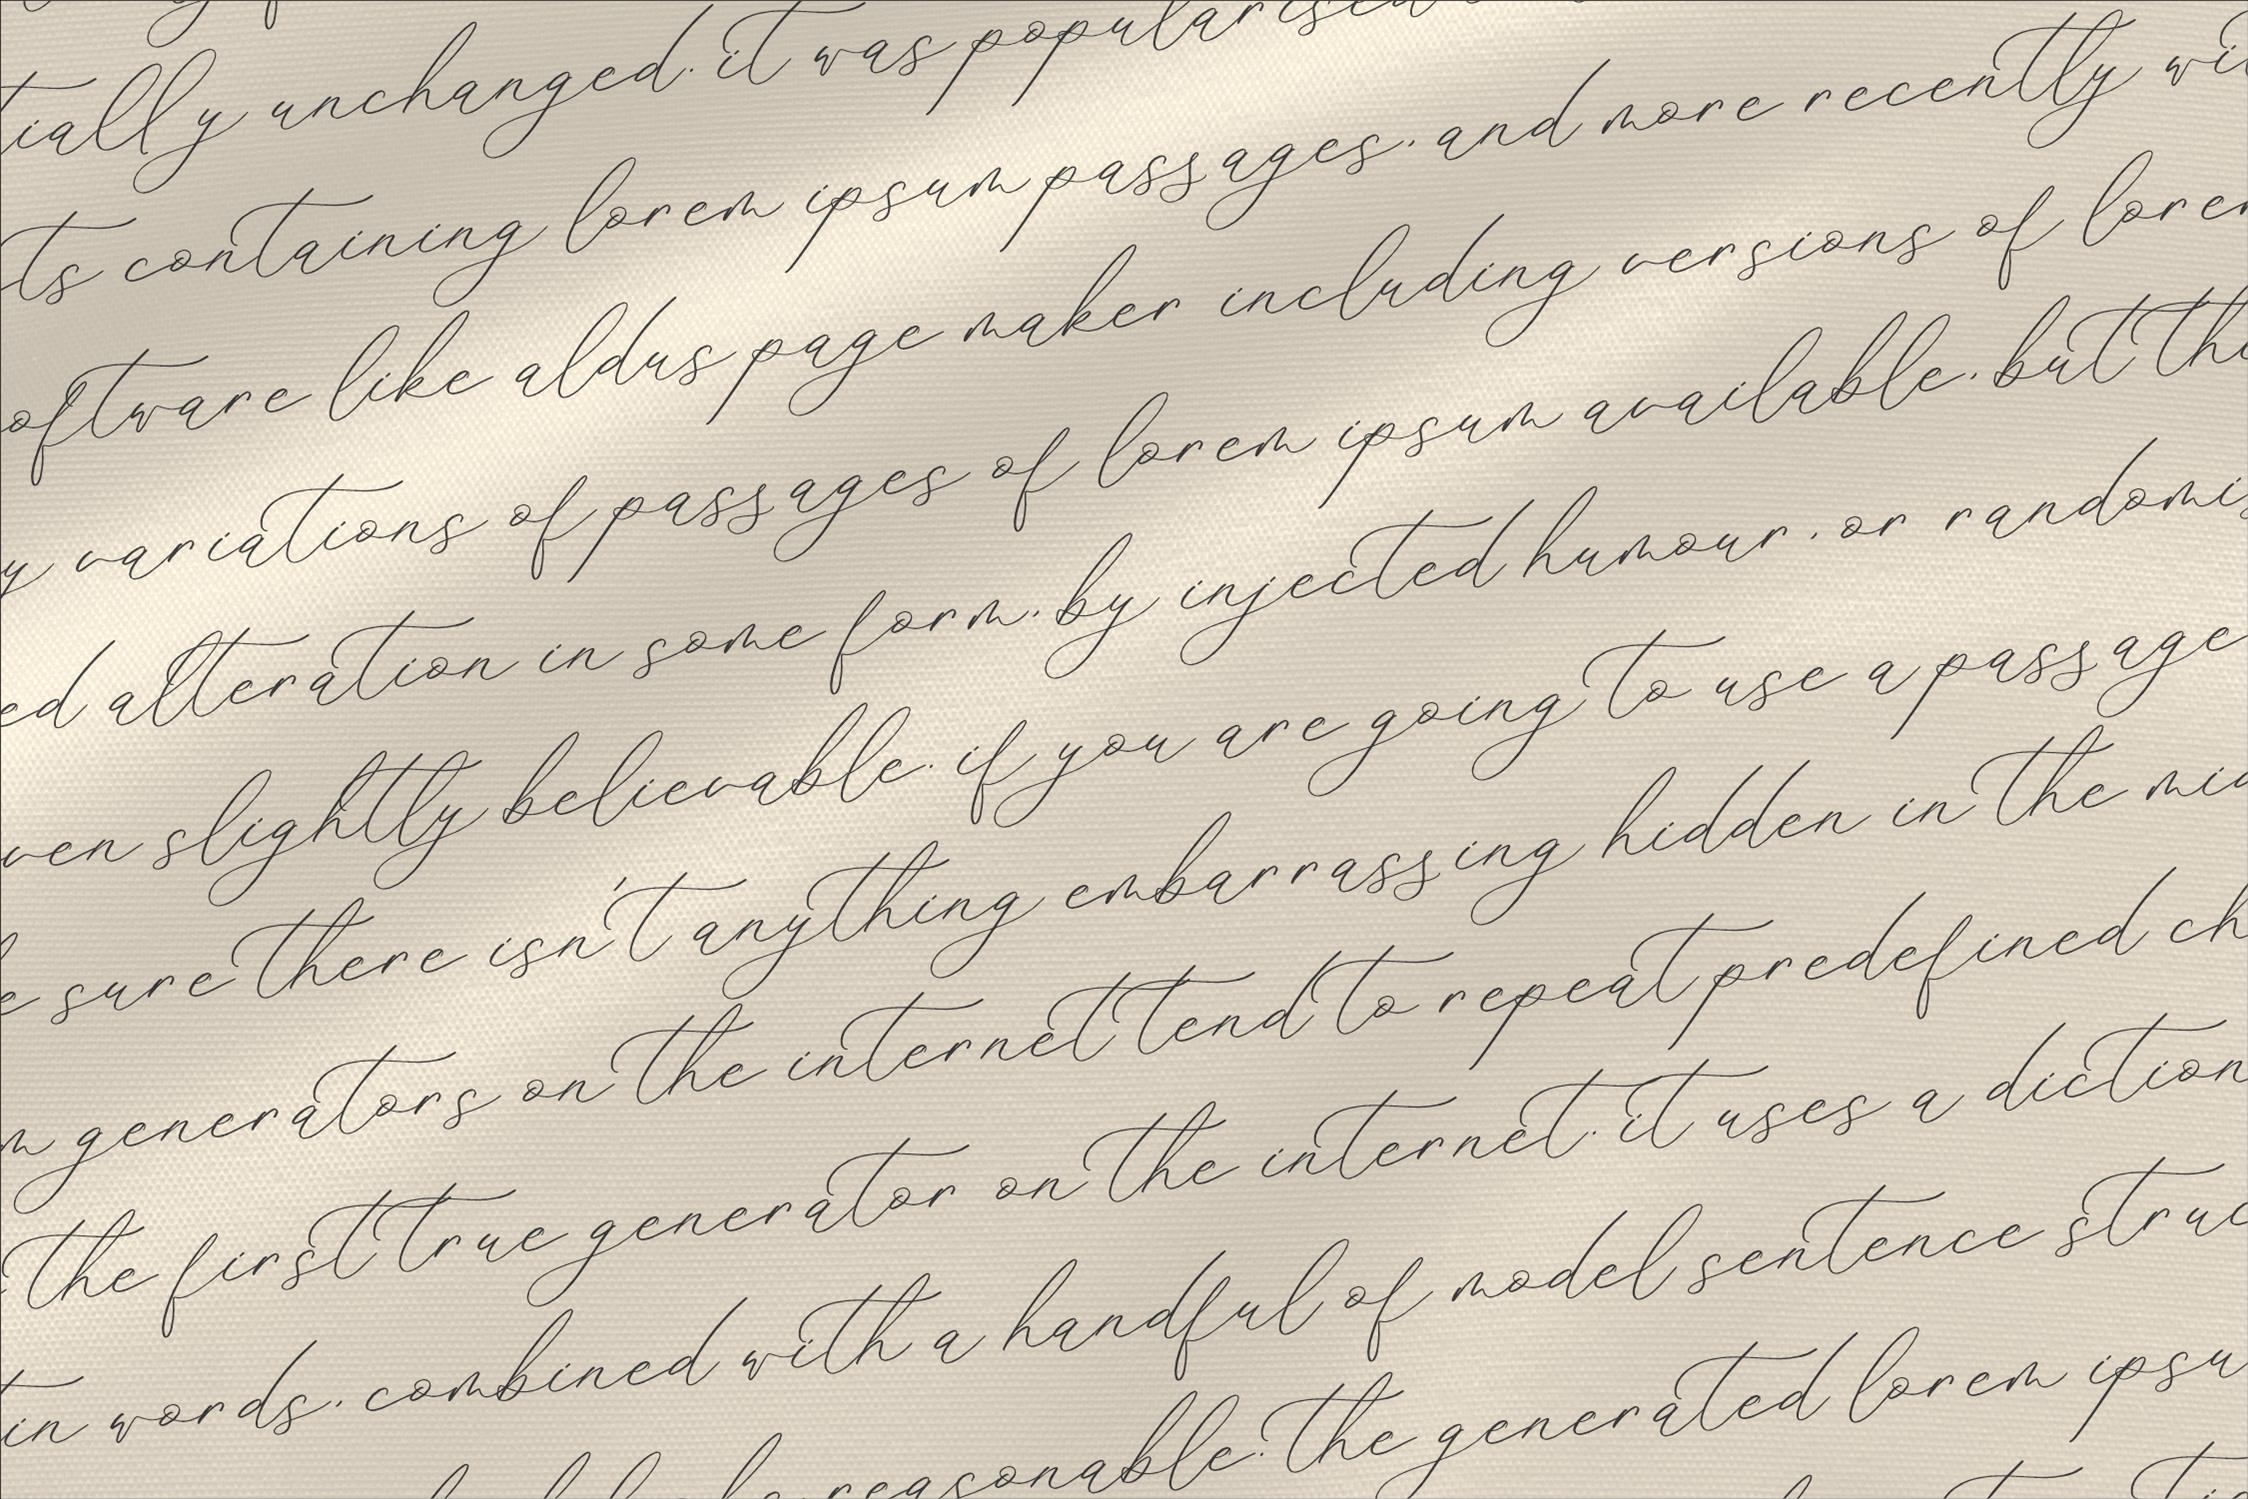 tially unchanged. it was popularised
ts containing lorem ipsum passages, and more recently wi
oftware like aldus page maker including versions of lorem
y variations of passages of lorem ipsum available, but th
ed alteration in some form, by injected humour, or randomis
ven slightly believable. if you are going to use a passage
e sure there isn't anything embarrassing hidden in the mid
m generators on the internet tend to repeat predefined ch
the first true generator on the internet. it uses a diction
in words, combined with a handful of model sentence struc
reasonable. the generated lorem ipsu